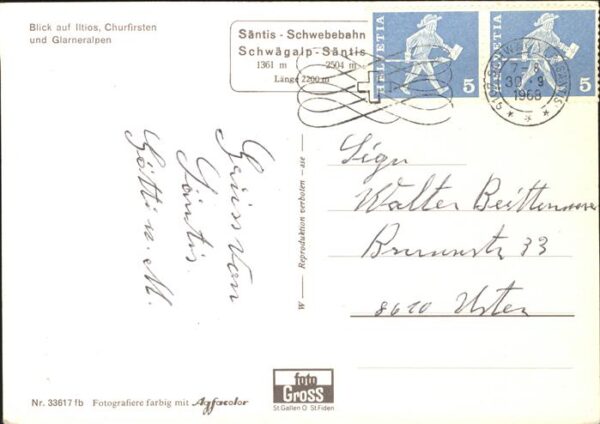 Blick auf Iltios, Churfirsten
und Glarneralpen
Säntis - Schwebebahn
Schwägalp - Säntis
1361 m 2504 m
Länge 2200 m
HELVETIA 5
HELVETIA 5
7-8
30.9
1968
Gruss vom
Säntis.
Götti u. M.
W — Reproduktion verboten - ase
Sign
Walter
Brunnstr 33
8610 Uster
foto
Gross
St.Gallen O St.Fiden
Nr. 33617 fb Fotografiere farbig mit Agfacolor